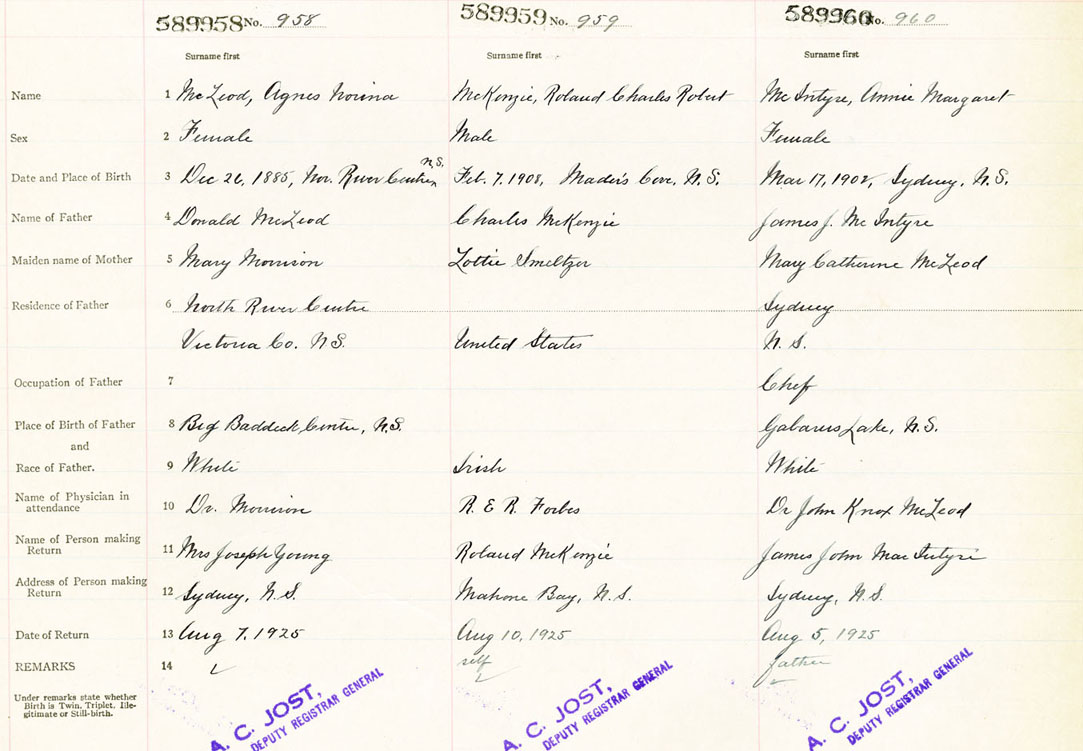 589958 No. 958 589959 No. 959 589960 No. 960
Surname first Surname first Surname first
Name 1 McLeod, Agnes Norina McKenzie, Roland Charles Robert McIntyre, Annie Margaret
Sex 2 Female Male Female
N.S.
Date and Place of Birth 3 Dec 26, 1885, Nor. River Centre Feb. 7. 1908, Mader's Cove, N.S. Mar 17, 1902, Sydney, N.S.
Name of Father 4 Donald McLeod Charles McKenzie James J. McIntyre
Maiden name of Mother 5 Mary Morrison Lottie Smeltzer Mary Catherine McLeod
Residence of Father 6 North River Centre Sydney
Victoria Co. N.S. United States N.S.
Occupation of Father 7 Chef
Place of Birth of Father 8 Big Baddeck Centre, N.S. Gabarus Lake, N.S.
and
Race of Father. 9 White Irish White
Name of Physician in
attendance 10 Dr. Morrison R. E R. Forbes Dr John Knox McLeod
Name of Person making
Return 11 Mrs Joseph Young Roland McKenzie James John MacIntyre
Address of Person making
Return 12 Sydney, N.S. Mahone Bay, N.S. Sydney, N.S.
Date of Return 13 Aug 7, 1925 Aug 10, 1925 Aug 5, 1925
REMARKS 14 self father
Under remarks state whether
Birth is Twin, Triplet. Ille-
gitimate or Still-birth.
A. C. JOST, A. C. JOST, A. C. JOST,
DEPUTY REGISTRAR GENERAL DEPUTY REGISTRAR GENERAL DEPUTY REGISTRAR GENERAL